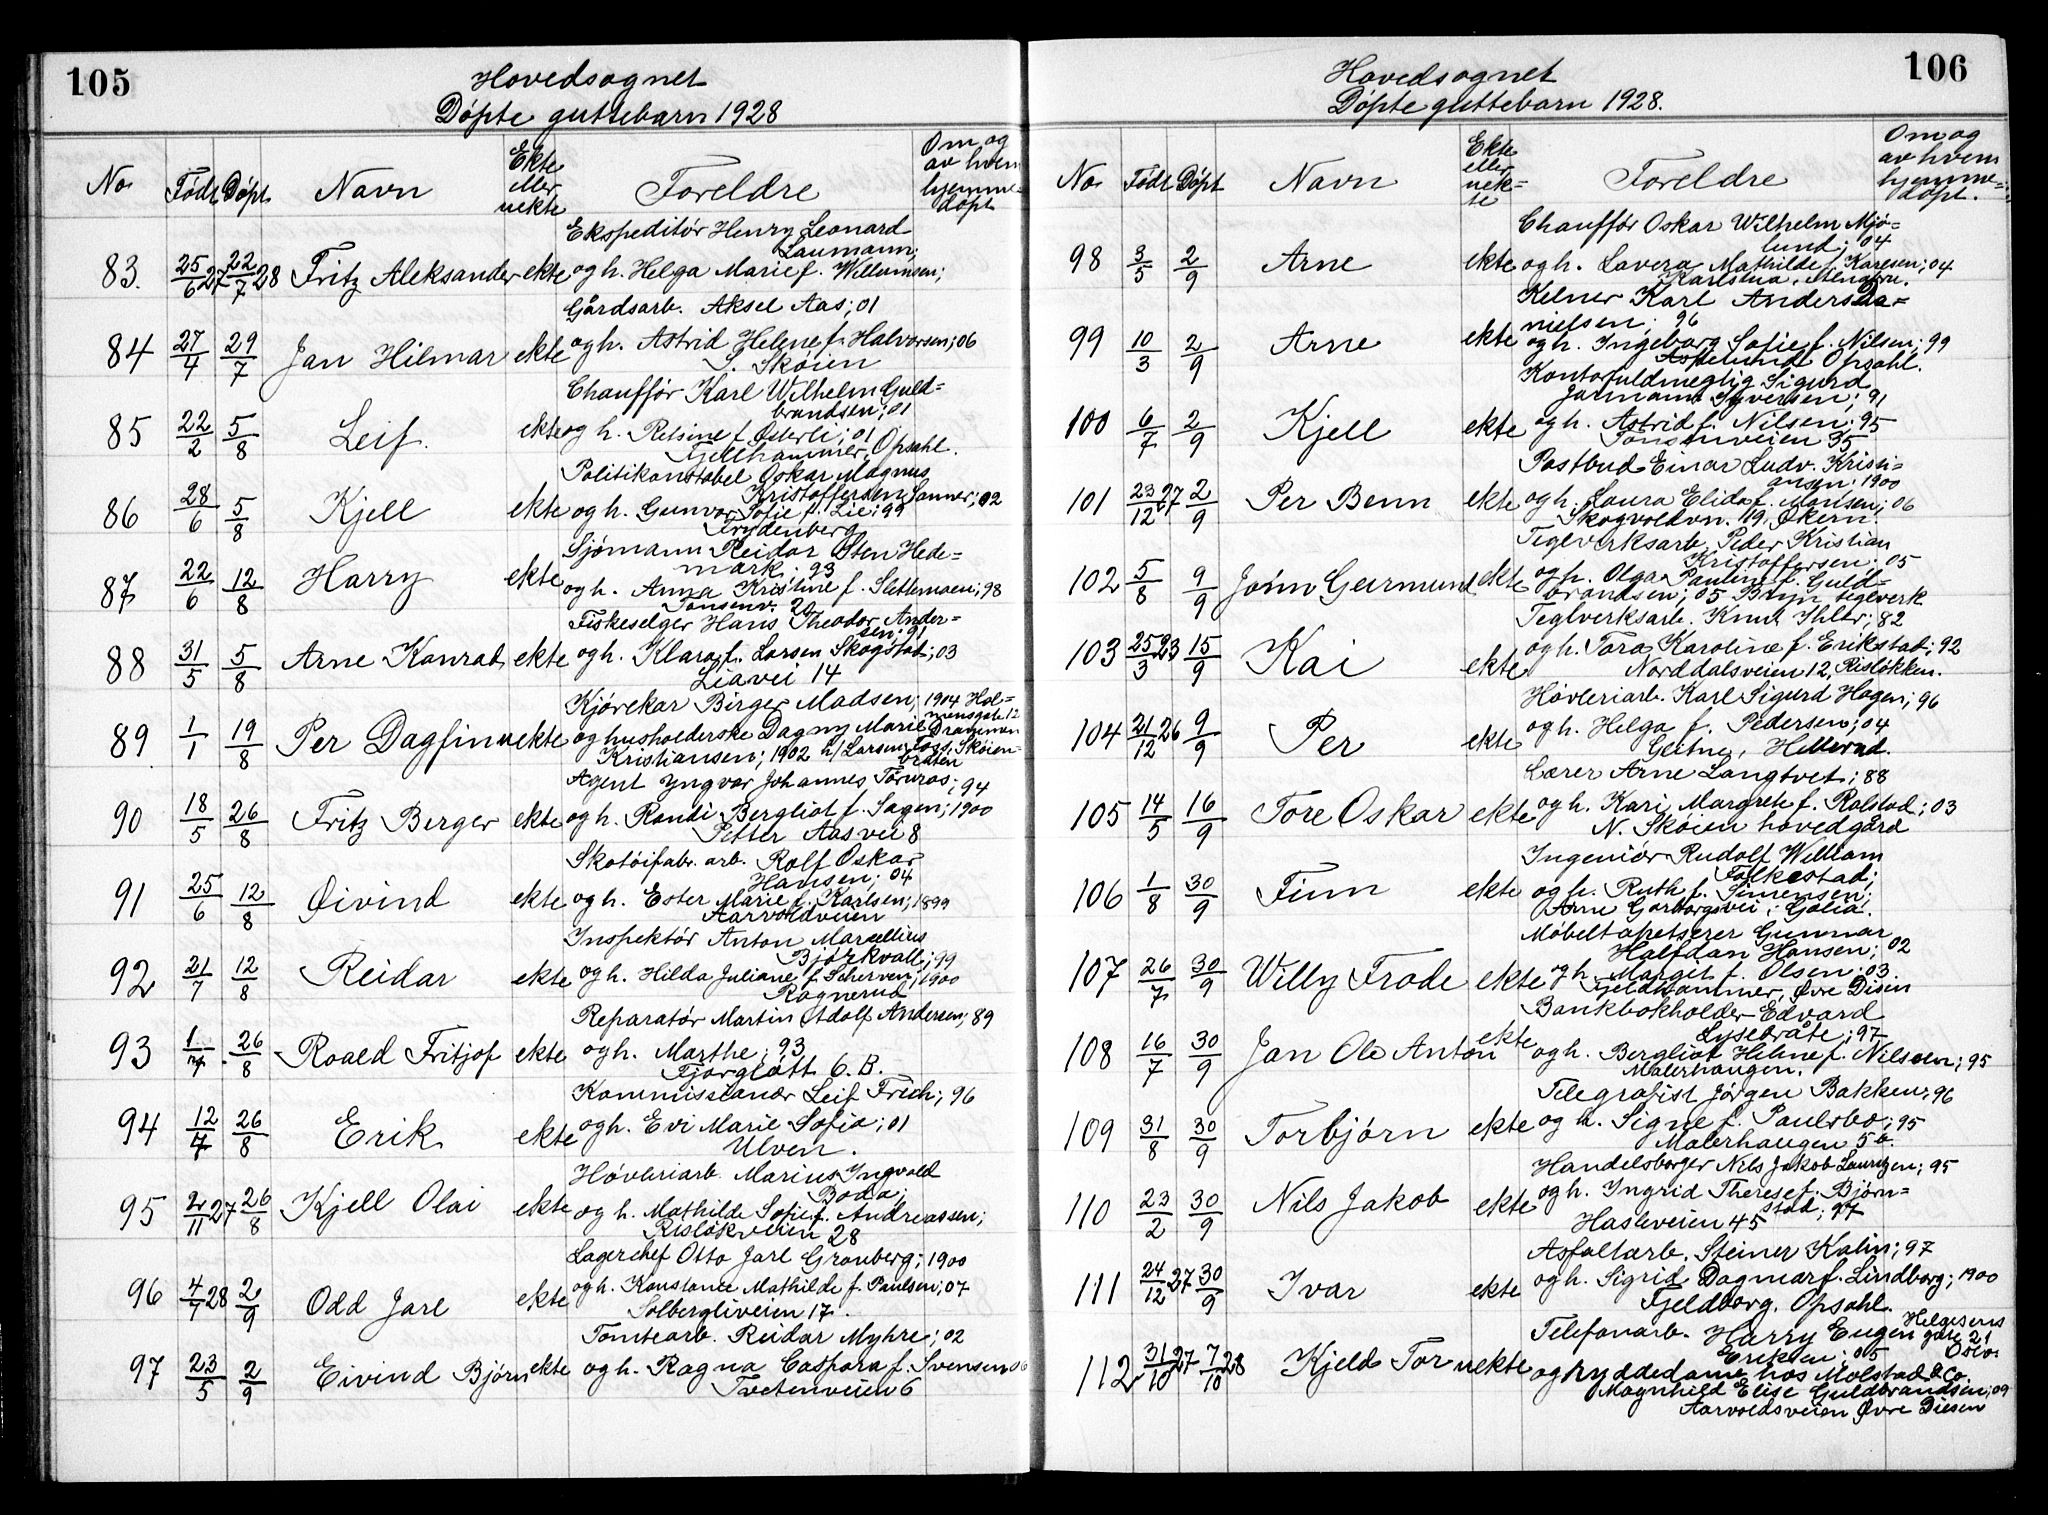 105
Hovedsognet
Døpte guttebarn 1928
No. Født Døpt Navn Ekte eller uekte Foreldre Om og av hvem hjemmedøpt
Ekspeditør Henry Leonard
Laumann;
83. 25/6 27 22/7 28 Fritz Aleksander ekte og h. Helga Marie f. Willumsen;
Gårdsarb. Aksel Aas; 01
84 27/4 29/7 Jan Hilmar ekte og h. Astrid Helene f. Halvorsen; 06
S. Skøien
Chauffør Karl Wilhelm Guld=
brandsen; 01
85 22/2 5/8 Leif. ekte og h. Petsine f. Østerli; 01
Fjellhammer, Opsahl.
Politikonstabel Oskar Magnus
Kristoffersen Sanner; 02
86 28/6 5/8 Kjell ekte og h. Gunvor Sofie f. Lie; 99
Frydenberg
Sjømann Reidar Østen Hede=
mark; 93
87 22/6 12/8 Harry ekte og h. Anna Kristine f. Slettemoen; 98
Tonsenv. 22
Fiskeselger Hans Theodor Ander=
sen; 91
88 31/5 5/8 Arne Konrad ekte og h. Klara f. Larsen Skogstad; 03
Liavei 14
Kjørekar Birger Madsen; 1904 Hol=
mensgate 12
89 1/1 19/8 Per Dagfinn uekte og husholderske Dagny Marie Drammen
Kristiansen; 1902 h/Larsen Torg. Skøien=
bråten
Agent Yngvar Johannes Tørnros; 94
90 18/5 26/8 Fritz Berger ekte og h. Randi Bergliot f. Sagen; 1900
Petter Aas vei 8
Skotøifabr. arb. Rolf Oskar
Hansen; 04
91 25/6 12/8 Øivind ekte og h. Ester Marie f. Karlsen; 1899
Aarvoldveien
Inspektør Anton Marcellius
Bjørkvall; 99
92 21/7 12/8 Reidar ekte og h. Hilda Juliane f. Scherven; 1900
Ragnerud
Reparatør Martin Adolf Andersen; 89
93 1/7 26/8 Roald Fritjof ekte og h. Marthe; 93
Fjørgløtt 6. B.
Kommissionær Leif Frich; 96
94 12/7 26/8 Erik ekte og h. Evi Marie Sofia; 01
Ulven.
Høvleriarb. Marius Ingvald
Boda;
95 2/11 27 26/8 Kjell Olai ekte og h. Mathilde Sofie f. Andreassen;
Risløkveien 28
Lagerchef Otto Jarl Granberg; 1900
96 4/7 28 2/9 Odd Jarl ekte og h. Konstance Mathilde f. Paulsen; 07
Solbergliveien 17.
Tomtearb. Reidar Myhre; 02
97 23/5 2/9 Eivind Bjørn ekte og h. Ragna Caspara f. Svensen 06
Tvetenveien 6
106
Hovedsognet
Døpte guttebarn 1928.
No. Født Døpt Navn Ekte eller uek=te Foreldre Om og av hvem hjemme=døpt.
Chauffør Oskar Wilhelm Mjø=
lund; 04
98 3/5 2/9 Arne ekte og h. Lavera Mathilde f. Karlsen; 04
Karlstua,
Kelner Karl Anders Da=
nielsen; 96
99 10/3 2/9 Arne ekte og h. Ingeborg Sofie f. Nilsen; 99
Aspelund Opsahl.
Kontofuldmegtig Sigurd
Jarmann Syversen; 91
100 6/7 2/9 Kjell ekte og h. Astrid f. Nilsen; 95
Tonsenveien 35
Postbud Einar Ludv. Kristi=
ansen; 1900
101 23/12 27 2/9 Per Benn ekte og h. Laura Elida f. Martsen; 06
Skogvoldvn. 19, Økern.
Teglverksarb. Peder Kristian
Kristoffersen; 05
102 5/8 9/9 John Geirmund ekte og h. Olga Pauline f. Guld=
brandsen; 05 Bryn teglverk
Teglverksarb. Knut Ihler; 82
103 25/3 23 15/9 Kai ekte og h. Tora Karoline f. Erikstad; 92
Norddalsveien 12, Risløkken.
Høvleriarb. Karl Sigurd Hagen; 96
104 21/12 26 9/9 Per ekte og h. Helga f. Pedersen; 04
Geitne, Hellerud.
Lærer Arne Langtvet; 88
105 14/5 16/9 Tore Oskar ekte og h. Kari Margrete f. Rolstad; 03
N. Skøien hovedgård
Ingeniør Rudolf William
Falkestad;
106 1/8 30/9 Finn ekte og h. Ruth f. Simensen;
Arne Garborgsvei; Golia.
Møbeltapetserer Gunnar
Halfdan Hansen; 02
107 26/7 30/9 Willy Frode ekte og h. Margit f. Olsen; 03.
Fjeldhammer, Øvre Disen
Bankbokholder Edvard
Lysebråte; 97
108 16/7 30/9 Jan Ole Anton ekte og h. Bergliot Helene f. Nilssen; 95
Malerhaugen.
Telegrafist Jørgen Bakken; 96
109 31/8 30/9 Torbjørn ekte og h. Signe f. Paulsbo; 95
Malerhaugen 5 a.
Handelsborger Nils Jakob Lauritzen; 95
110 23/2 30/9 Nils Jakob ekte og h. Ingrid Therese f. Bjørn=
stad; 97
Hasleveien 45
Asfaltarb. Steiner Kalin; 97
111 24/12 27 30/9 Ivar ekte og h. Sigrid Dagmar f. Lindborg; 1900
Fjeldborg, Opsahl.
Telefonarb. Harry Eugen Helgesens gate 21
Eriksen; 05 Oslo.
112 31/10 27 7/10 28 Kjeld Tor uekte og ryddedame hos Molstad & Co.
Magnhild Elise Guldbrandsen; 09
Aarvoldsveien Øvre Disen